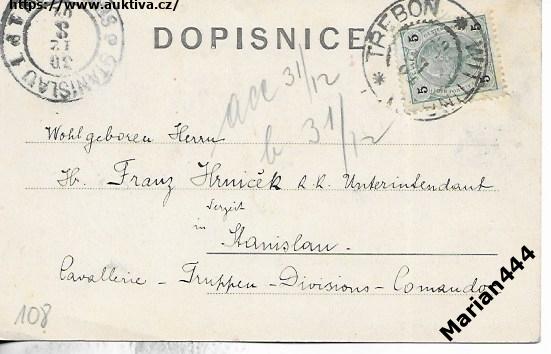 https://www.auktiva.cz/
STANISLAU
DOPISNICE
TŘEBOŇ
WITTINGAU
5 5
5 5
acc 31/12
b 31/12
Wohlgeboren Herrn
H. Franz Hrniček k. k. Unterintendant
derzeit
in
Stanislau.
Cavallerie - Truppen - Divisions - Comando
108
Marian444